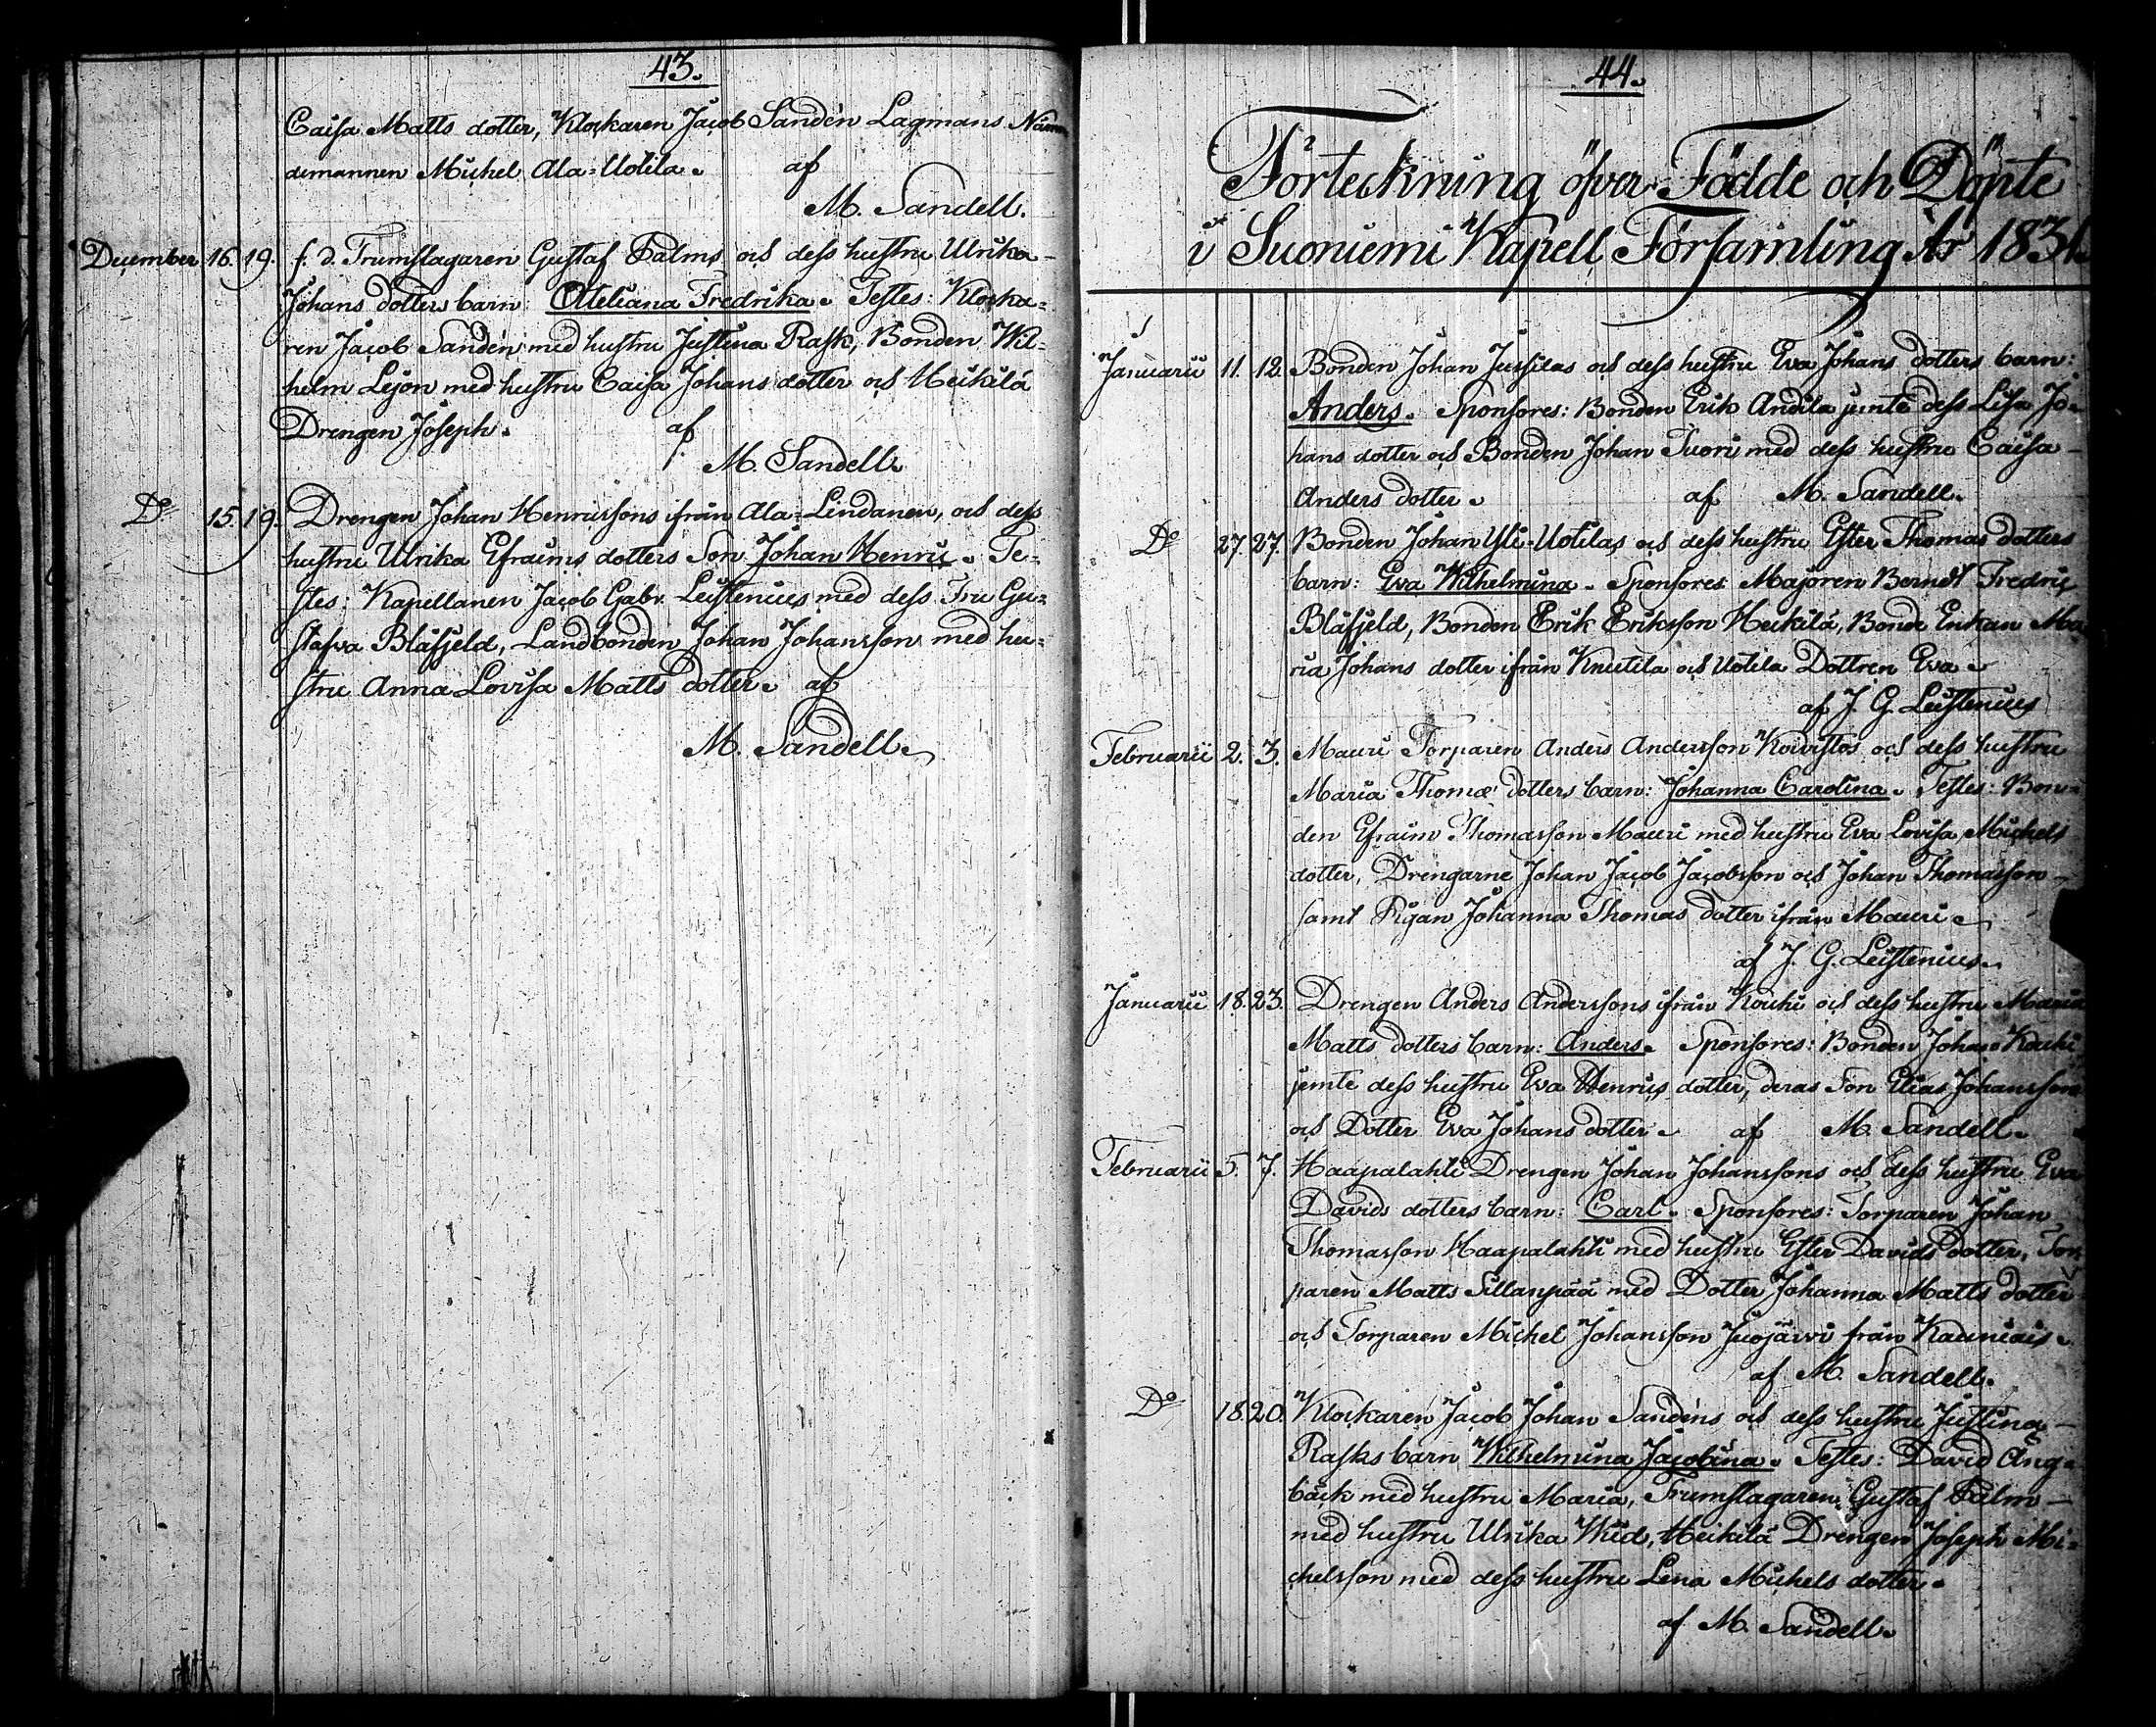 43.
Caisa Matts dotter, Klockaren Jacob Sandén Lagmans Näm
demannen Michel Ala=Uotila. af
M. Sandell.
December 16. 19. f. d. Trumslagaren Gustaf Palms och dess hustru Ulrika
Johans dotters barn: Otteliana Fredrika. Testes: Klocka=
ren Jacob Sandén med hustru Justina Rask, Bonden Wil=
helm Lejon med hustru Caisa Johans dotter och Heikilä
Drengen Joseph. af
M. Sandell.
Do 15. 19. Drengen Johan Henricssons ifrån Ala=Lindanen, och dess
hustru Ulrika Efraims dotters Son Johan Henric. Te=
stes: Kapellanen Jacob Gabr. Leistenius med dess Fru Gu=
stafva Blåfjeld, Landbonden Johan Johansson med hu=
stru Anna Lovisa Matts dotter. af
M. Sandell.
44.
Förteckning öfver Födde och Döpte
i Suoniemi Kapell Församling År 1831.
Januarii 11. 12. Bonden Johan Jussilas och dess hustru Eva Johans dotters barn:
Anders. Sponsores: Bonden Erik Andila jemte dess Lisa Jo=
hans dotter och Bonden Johan Tuori med dess hustru Caisa
Anders dotter. af M. Sandell.
Do 27. 27. Bonden Johan Yli=Uotilas och dess hustru Ester Thomas dotters
barn: Eva Wilhelmina. Sponsores: Majoren Berndt Fredric
Blåfjeld, Bonden Erik Eriksson Heikilä, Bonde Enkan Ma
ria Johans dotter ifrån Knutila och Uotila Dottren Eva.
af J. G. Leistenius
Februarii 2. 3. Mauri Torparen Anders Andersson Koivistos och dess hustru
Maria Thomæ dotters barn: Johanna Carolina. Testes: Bon=
den Efraim Thomasson Mauri med hustru Eva Lovisa Michels
dotter, Drengarne Johan Jacob Jacobsson och Johan Thomasson
samt Pigan Johanna Thomas dotter ifrån Mauri.
af J. G. Leistenius.
Januarii 18. 23. Drengen Anders Anderssons ifrån Kouhi och dess hustru Maria
Matts dotters barn: Anders. Sponsores: Bonden Johan Kouhi
jemte dess hustru Eva Henrics dotter, deras Son Elias Johansson
och Dotter Eva Johans dotter. af M. Sandell.
Februarii 5. 7. Haapalahti Drengen Johan Johanssons och dess hustru Eva
Davids dotters barn: Carl. Sponsores: Torparen Johan
Thomasson Haapalahti med hustru Ester Davids dotter, Tor
paren Matts Sillanpää med Dotter Johanna Matts dotter
och Torparen Michel Johansson Juojärvi från Kauniais.
af M. Sandell.
Do 18. 20. Klockaren Jacob Johan Sandéns och dess hustru Justina
Rasks barn Wilhelmina Jacobina. Testes: David Ång=
bäck med hustru Maria, Trumslagaren Gustaf Palm
med hustru Ulrika Wiid, Heikilä Drengen Joseph Mi=
chelsson med dess hustru Lena Michels dotter.
af M. Sandell.